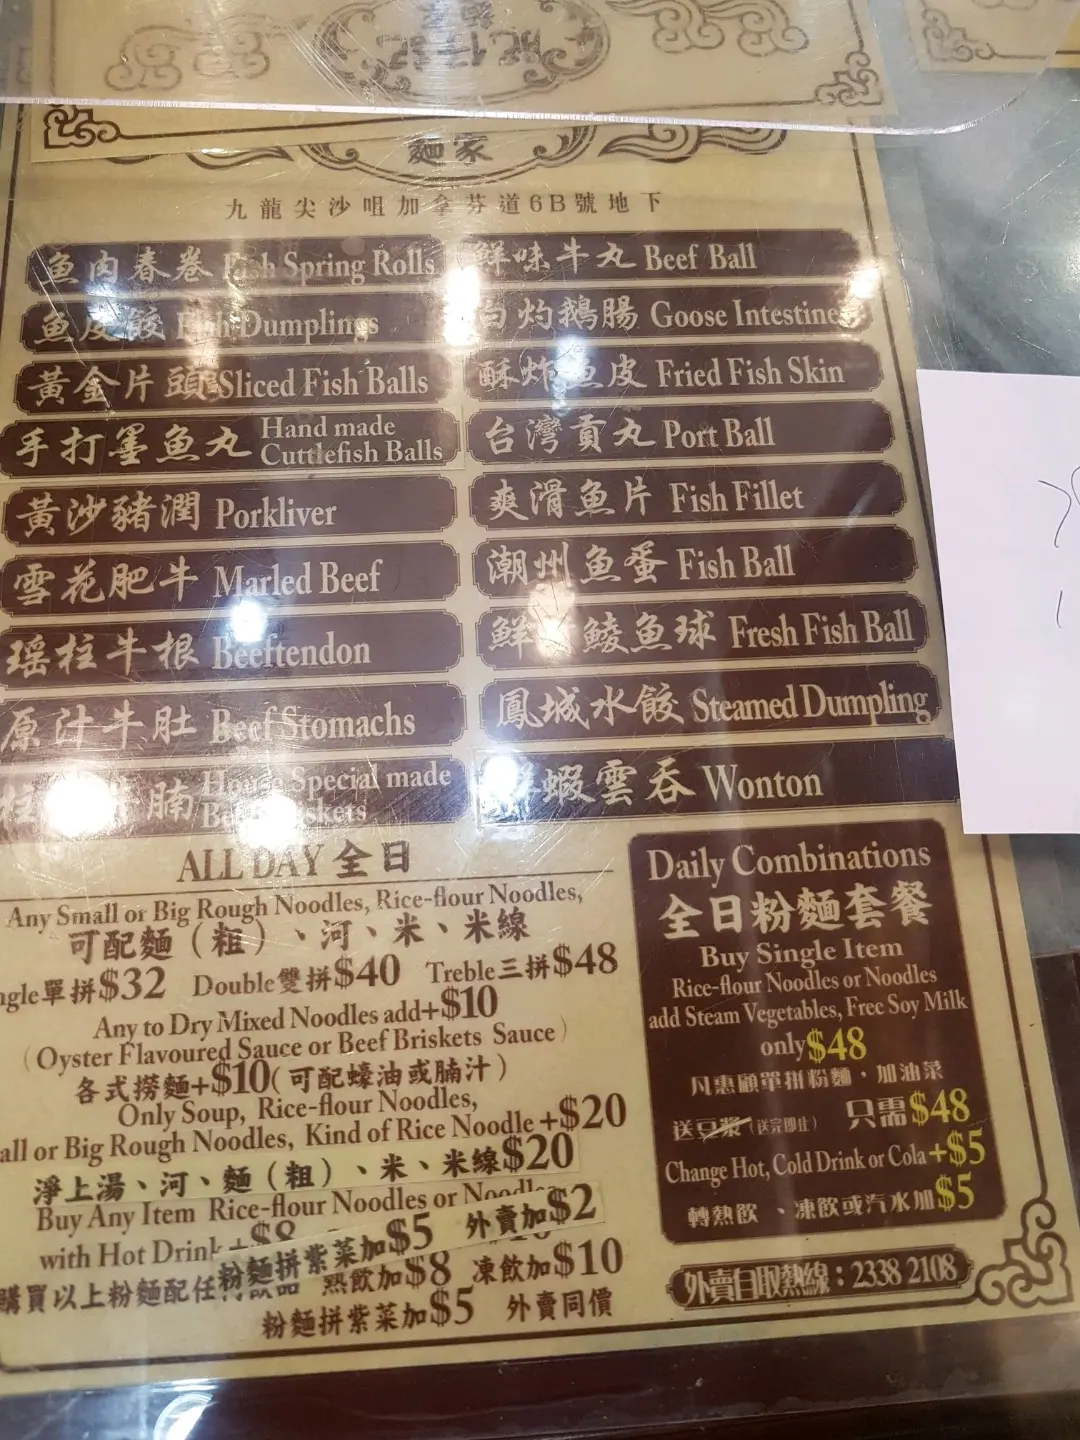 麵家
九龍尖沙咀加拿芬道6B號地下
魚肉春卷 Fish Spring Rolls
鮮味牛丸 Beef Ball
魚皮餃 Fish Dumplings
白灼鵝腸 Goose Intestine
黃金片頭 Sliced Fish Balls
酥炸魚皮 Fried Fish Skin
手打墨魚丸 Hand made Cuttlefish Balls
台灣貢丸 Port Ball
黃沙豬潤 Porkliver
爽滑魚片 Fish Fillet
雪花肥牛 Marled Beef
潮州魚蛋 Fish Ball
瑤柱牛根 Beeftendon
鮮 鯪魚球 Fresh Fish Ball
原汁牛肚 Beef Stomachs
鳳城水餃 Steamed Dumpling
腩 House Special made Beef Briskets
鮮蝦雲吞 Wonton
ALL DAY 全日
Any Small or Big Rough Noodles, Rice-flour Noodles,
可配麵（粗）、河、米、米線
ngle單拼$32 Double雙拼$40 Treble三拼$48
Any to Dry Mixed Noodles add+$10
(Oyster Flavoured Sauce or Beef Briskets Sauce)
各式撈麵+$10(可配蠔油或腩汁)
Only Soup, Rice-flour Noodles,
all or Big Rough Noodles, Kind of Rice Noodle +$20
淨上湯、河、麵（粗）、米、米線$20
Buy Any Item Rice-flour Noodles or Noodles
with Hot Drink+$8
粉麵拼紫菜加$5 外賣加$2
購買以上粉麵配任何飲品 熱飲加$8 凍飲加$10
粉麵拼紫菜加$5 外賣同價
Daily Combinations
全日粉麵套餐
Buy Single Item
Rice-flour Noodles or Noodles
add Steam Vegetables, Free Soy Milk
only$48
凡惠顧單拼粉麵，加油菜
送豆漿(送完即止) 只需$48
Change Hot, Cold Drink or Cola+$5
轉熱飲、凍飲或汽水加$5
外賣自取熱線：2338 2108